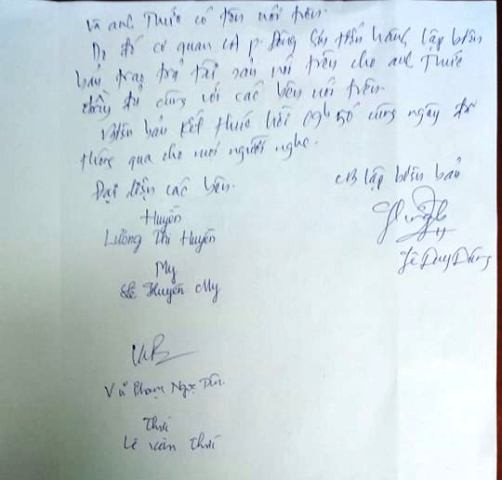 Và anh Thức có tên nói trên.
Do đó cơ quan CA p. Đông Sơn tiến hành lập biên
bản trao trả tài sản nói trên cho anh Thức
đầy đủ cùng với các bên nói trên.
Biên bản kết thúc hồi 09h50 cùng ngày đã
thông qua cho mọi người nghe.
Đại diện các bên.
CB lập biên bản
Huyền
Lường Thị Huyền
Lê Duy Dũng
My
Lê Huyền My
Vũ Phạm Ngọc
Thức
Lê Văn Thức